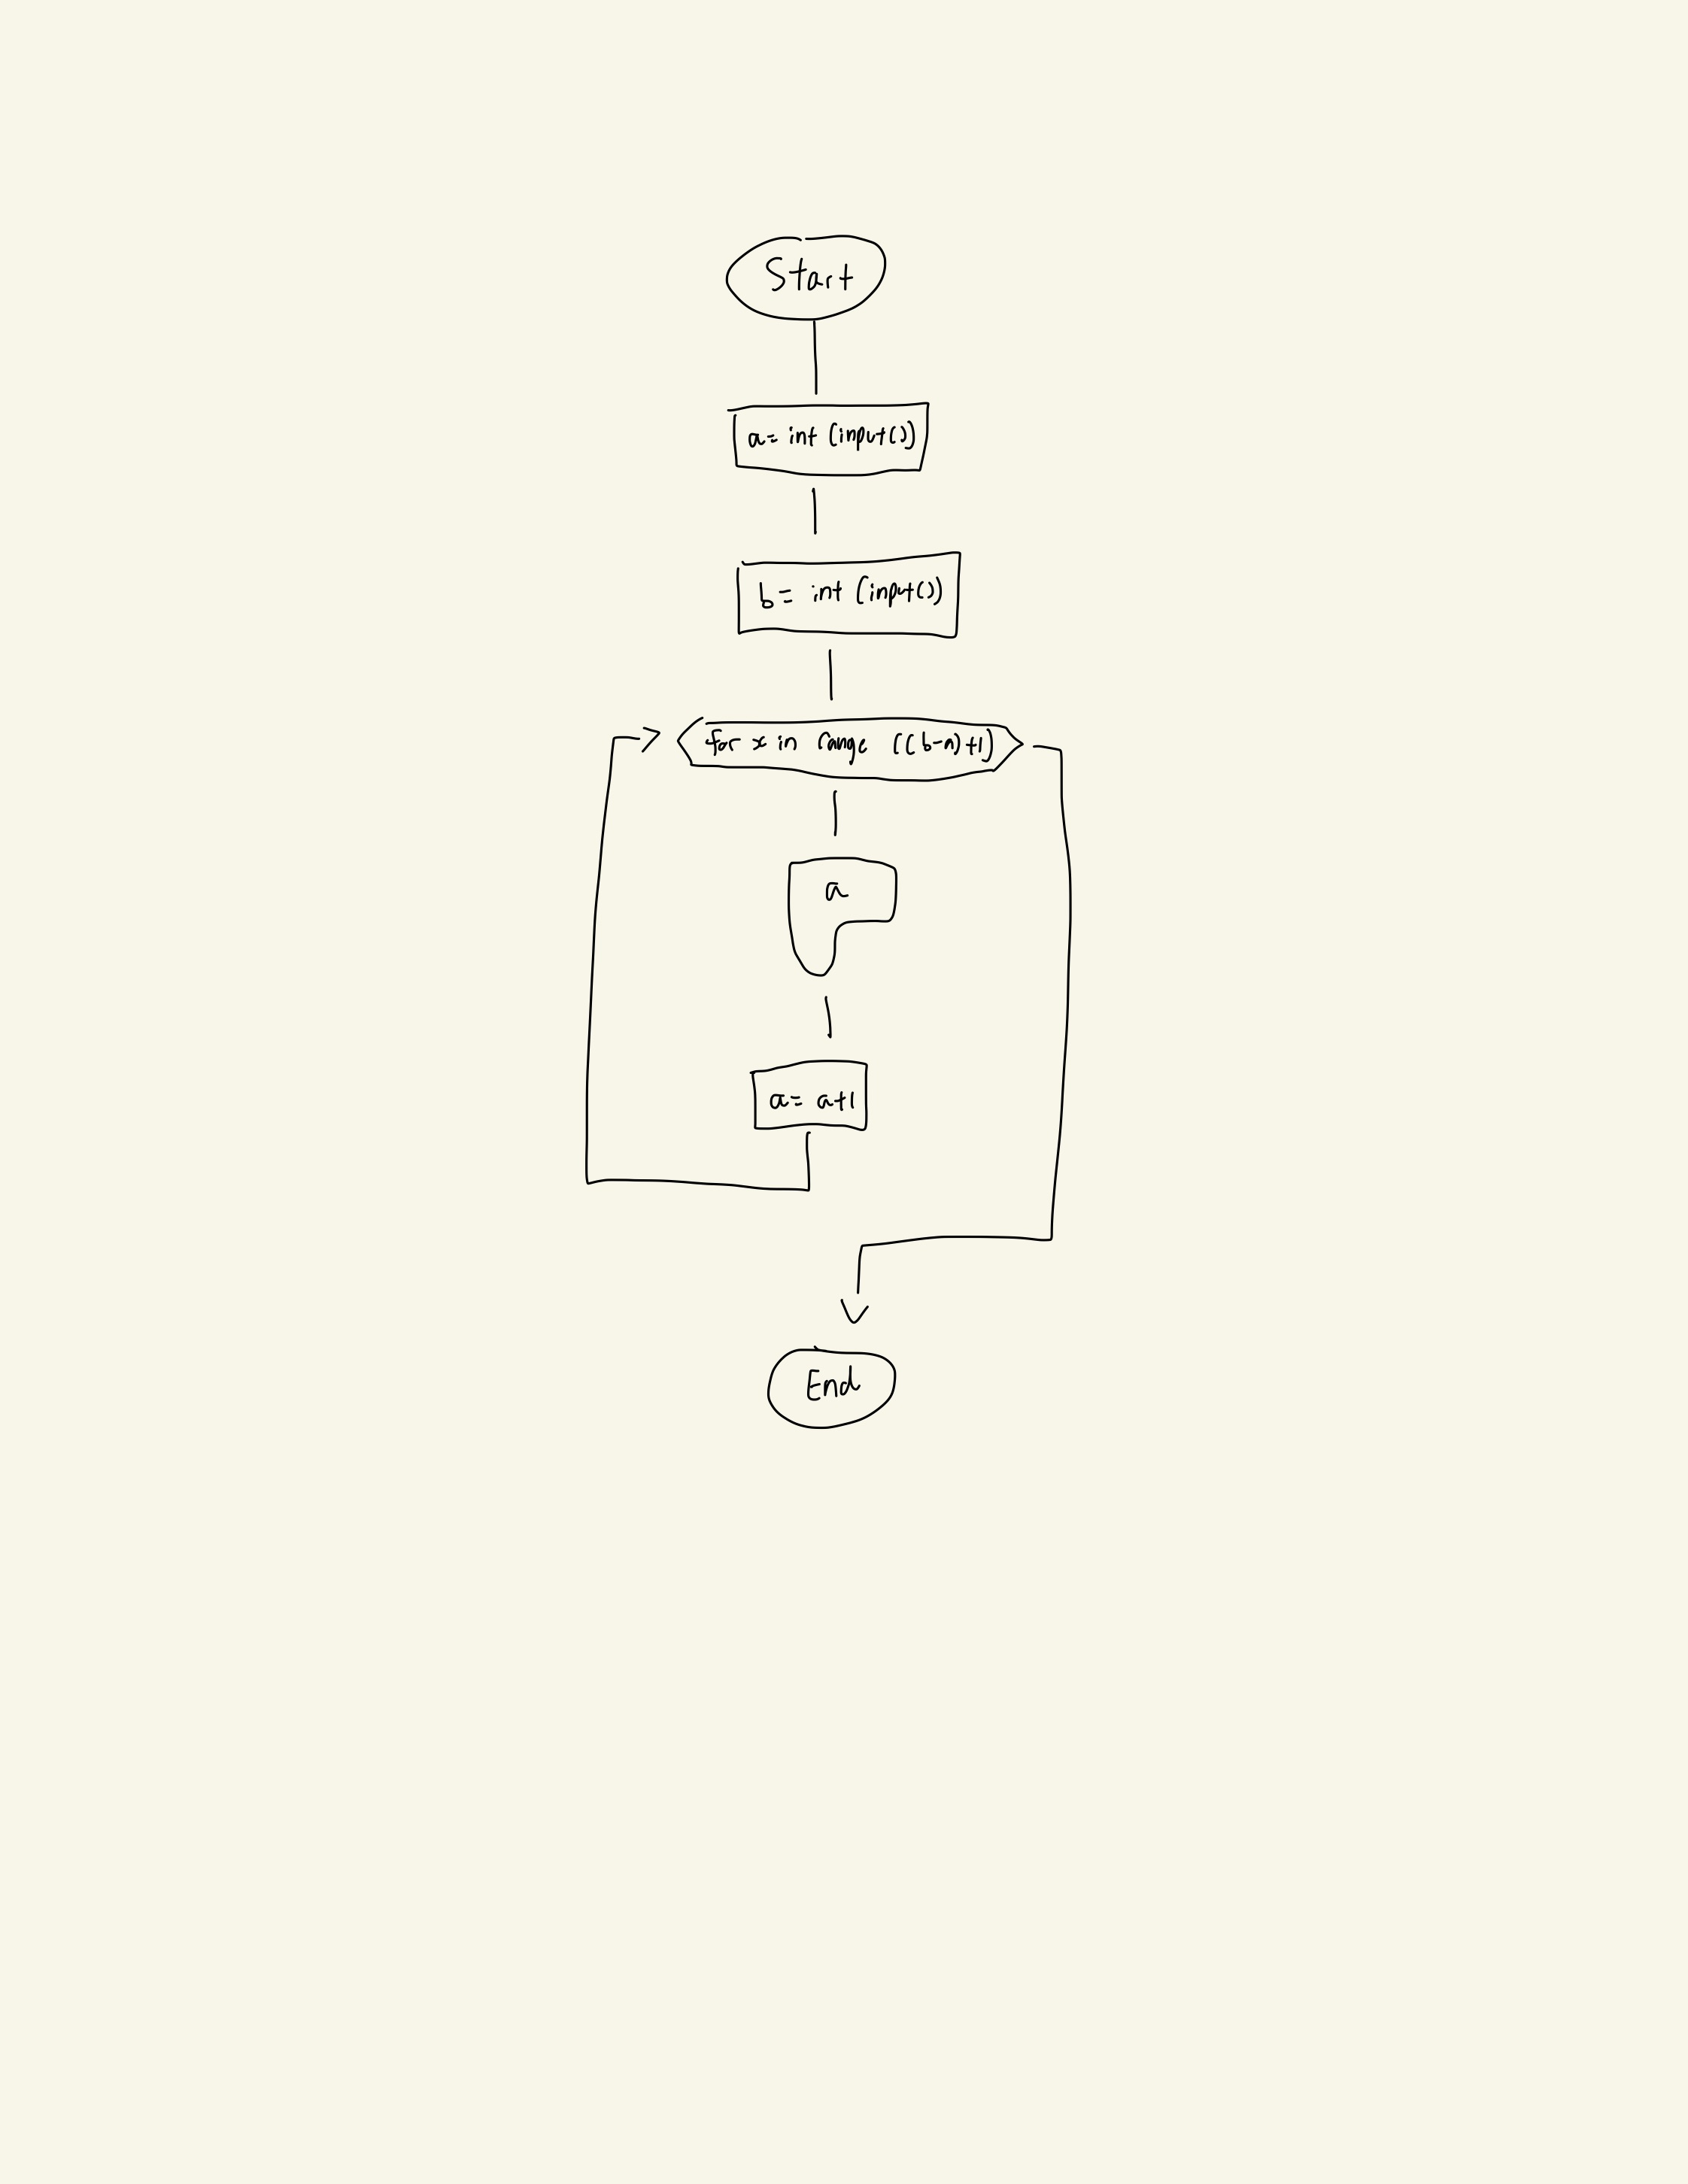 Start
a= int (input())
b= int (input())
for x in range ((b-a)+1)
a
a= a+1
End